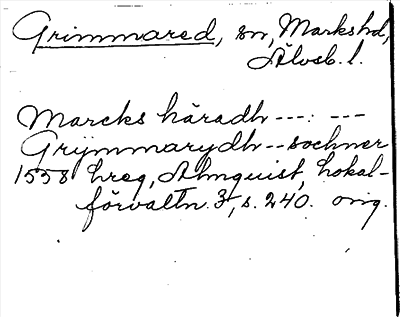 Grimmared, sn, Markshd,
Älvsb. l.
Marcks häradh ---: ---
Grÿmmarydh -- sochner
1558 hreg, Almquist, Lokal-
förvaltn. 3, s. 240. orig.